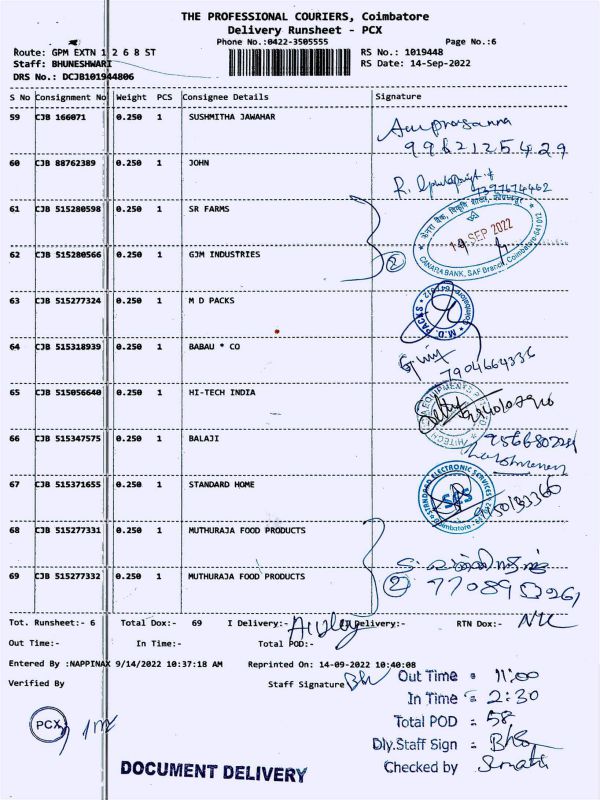 THE PROFESSIONAL COURIERS, Coimbatore
Delivery Runsheet - PCX
Phone No.:0422-3505555 Page No.:6
Route: GPM EXTN 1 2 6 8 ST RS No.: 1019448
Staff: BHUNESHWARI RS Date: 14-Sep-2022
DRS No.: DCJB101944806
S No Consignment No Weight PCS Consignee Details Signature
59 CJB 166071 0.250 1 SUSHMITHA JAWAHAR
60 CJB 88762389 0.250 1 JOHN
61 CJB 515280598 0.250 1 SR FARMS
14 SEP 2022
CANARA BANK, SAF Branch, Coimbatore-641012
62 CJB 515280566 0.250 1 GJM INDUSTRIES
2
63 CJB 515277324 0.250 1 M D PACKS
64 CJB 515318939 0.250 1 BABAU * CO
7904664336
65 CJB 515056640 0.250 1 HI-TECH INDIA
66 CJB 515347575 0.250 1 BALAJI
67 CJB 515371655 0.250 1 STANDARD HOME
STANDARD ELECTRONIC SERVICES
SES
68 CJB 515277331 0.250 1 MUTHURAJA FOOD PRODUCTS
69 CJB 515277332 0.250 1 MUTHURAJA FOOD PRODUCTS
2
Tot. Runsheet:- 6 Total Dox:- 69 I Delivery:- Delivery:- RTN Dox:-
Out Time:- In Time:- Total POD:-
Entered By :NAPPINAX 9/14/2022 10:37:18 AM Reprinted On: 14-09-2022 10:40:08
Verified By Staff Signature
Out Time = 11:00
In Time = 2:30
Total POD = 58
Dly.Staff Sign =
Checked by
PCX
DOCUMENT DELIVERY